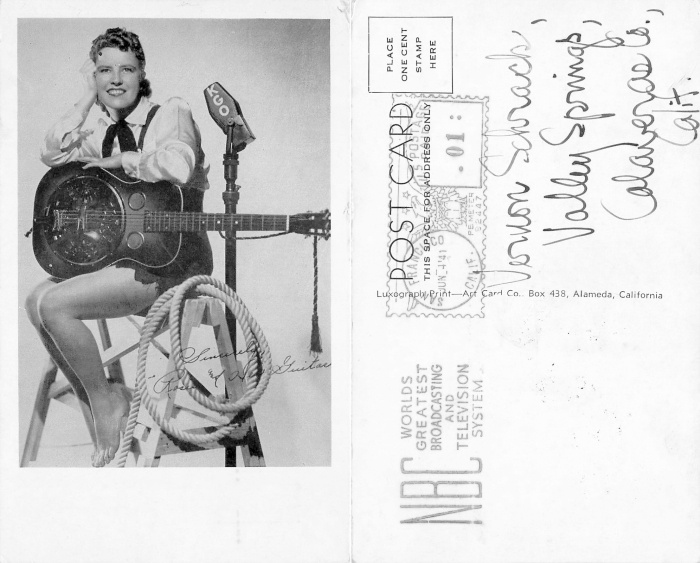 KGO
Sincerely
"Rosie" and Her Guitar
PLACE
ONE CENT
STAMP
HERE
POST CARD
THIS SPACE FOR ADDRESS ONLY
U.S. POSTAGE
.01
PB METER
SAN FRANCISCO
JUN -4 '41
CALIF.
Vernon Schrack,
Valley Springs,
Calaveras Co.,
Calif.
Luxography Print—Art Card Co. Box 438, Alameda, California
NBC
WORLDS
GREATEST
BROADCASTING
AND
TELEVISION
SYSTEM